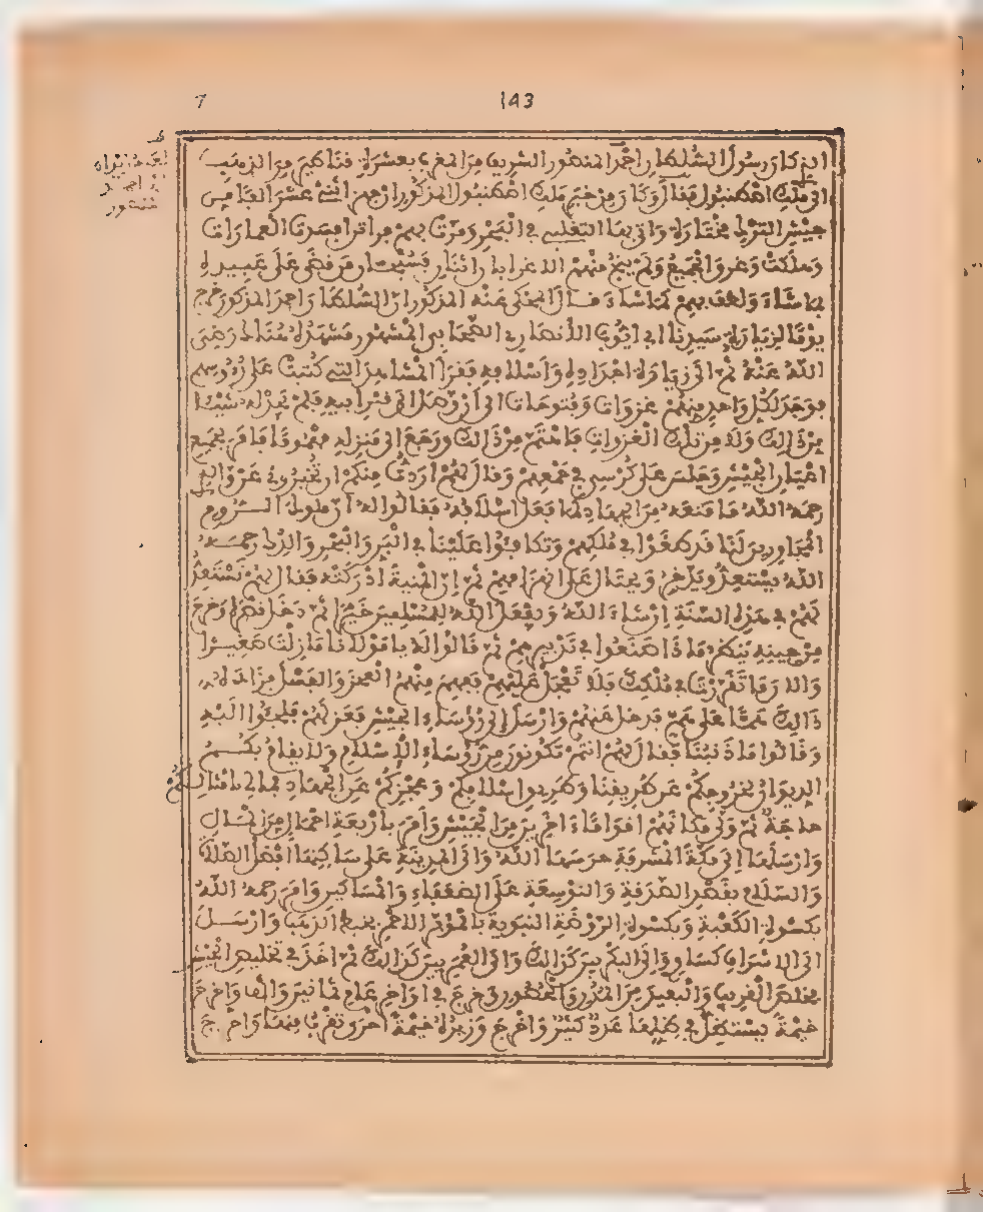 7 143
الذي كان رسول السلطان احمد المنصور الشريف من المغرب بعشرة قناطير من الذهب
الى ملك اصطنبول فقال وكان من خبر ملك اصطنبول المذكور
جيش الترك في البحر وفرق بهم
وهلكت وغرو الجميع ولم ينج منهم الا غرابا او اثنان فسبحان من قضى على عبيده
بما شاء ولطف بهم كما شاء قال المحكي عنه المذكور ان السلطان احمد المذكور خرج
يوما لزيارة سيدنا ابي ايوب الانصاري الصحابي المشهور هنالك رضي
الله عنه ثم الى زيارة اجداده واسلافه فقرا المشاهد التي كتبت على رؤوسهم
فوجد لكل واحد منهم غزوات وفتوحات الى ان وصل الى قبر ابيه فلم يجد له شيئا
من ذالك ولا من تلك الغزوات فاغتم من ذالك ورجع الى منزله مهموما فامر بجميع
اعيان الجيش وجلس على كرسي في جمعهم وقال لهم اردت منكم ان تخبروني عن والدي
رحمه الله ما منعه من الجهاد كما فعل اسلافه فقالوا له ان ملوك الروم
المجاورين لنا قد طغوا في ملكهم وتكالبوا علينا في البر والبحر والدك رحمه
الله يستعد ويدخر ويحتال على ثم ان المنية ادركته فقال لهم نستعد
لهم في هذه السنة ان شاء الله ويفعل الله للمسلمين خيرا ثم دخل قصره وخرج
من حينه ينظر ماذا صنعوا في تدبيرهم ثم قالوا له يا مولانا ما زلت صغيرا
والان ما تفرق في ملكك فلا تعجل عليهم فبهم منهم العجز والفشل فزاده
ذالك غما على غم فدخل عنهم وارسل الى رؤساء الجيش فعزلهم فلجئوا اليه
وقالوا ما ذنبنا فقال لهم انتم تكونون من رؤساء الاسلام ولا يقام بكم
الديوان لخروجكم عن طريقنا وطريق اسلافكم وعجزكم عن الجهاد فما لي بامثالكم
حاجة ثم ولى مكانهم اقواما اخرين من الجيش وامر باربعة احمال من المال
وارسلها الى مكة المشرفة حرسها الله والى المدينة على ساكنها افضل الصلاة
والسلام بقصد الصدقة والتوسعة على الضعفاء والمساكين وامر رحمه الله
بكسوة الكعبة وبكسوة الروضة النبوية بالموبر الاخضر بخيط الذهب وارسل
الى الاشراف كساوي والى البكريين كذالك والى العمريين كذالك ثم اخذ في تخليص الجيش
بخلص القريب والبعيد من المدن والحضور وخرج في اواخر عام ثمانين والف واخرج
خيمة يستظل في ظلها عدد كثير واخرج وزيره خيمة اخرى تقرب منها واخرج